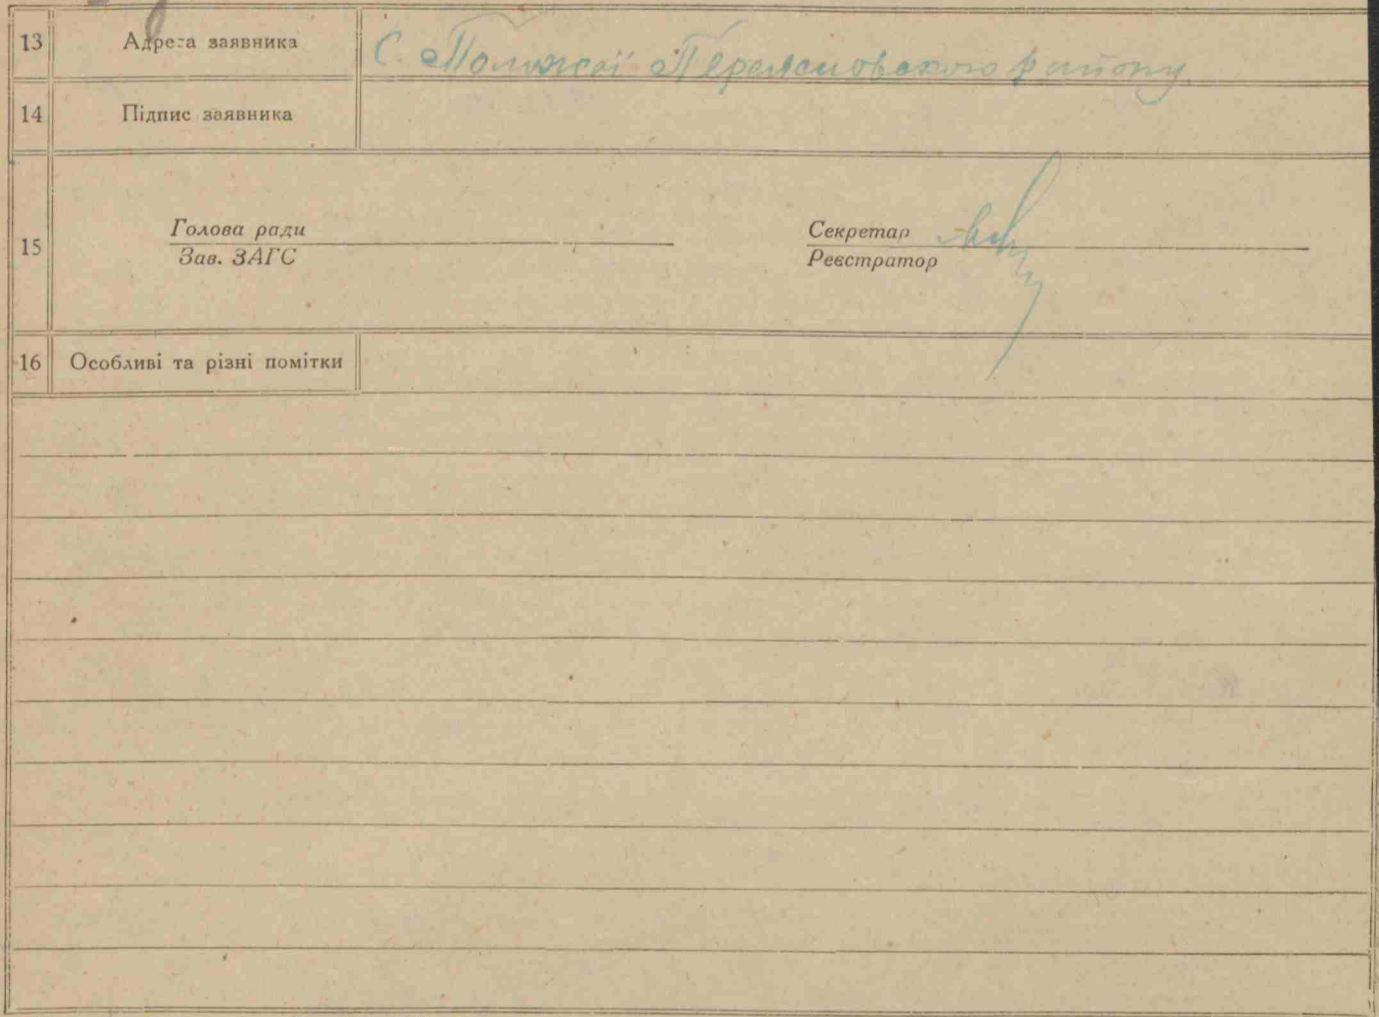 13 Адреса заявника С. Положаї Переяславського району.
14 Підпис заявника
15 Голова ради
Зав. ЗАГС
Секретар
Реєстратор
16 Особливі та різні помітки